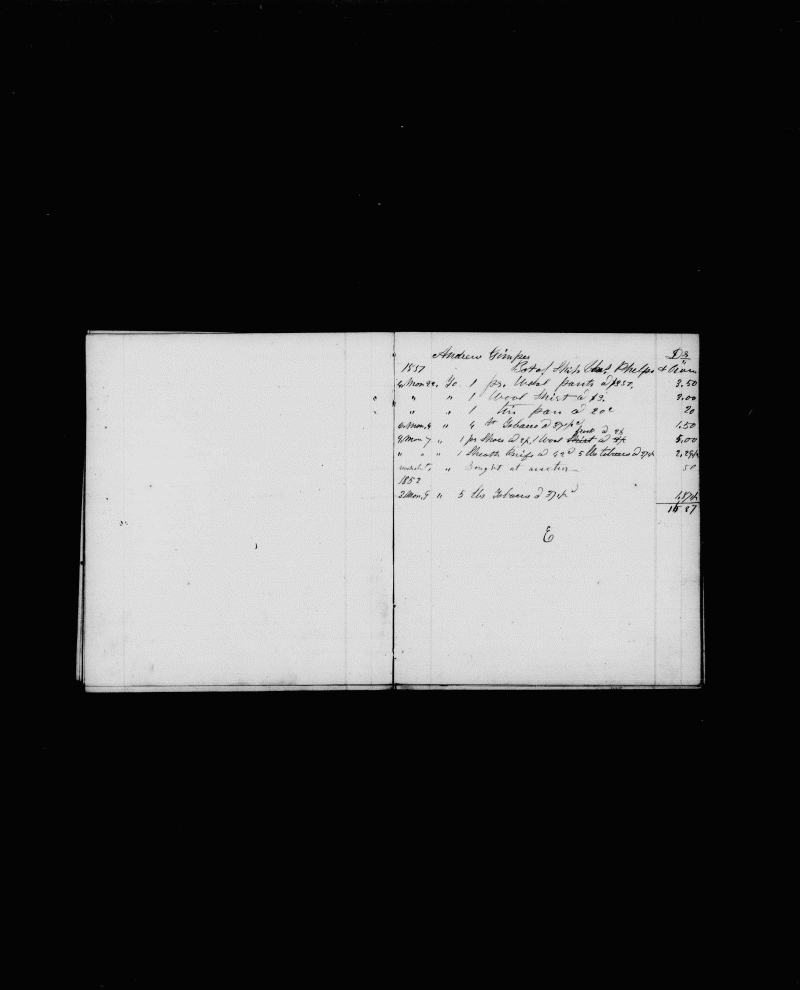 Andrew Gimper Dr
1851 Bot of Ship Phelps & Own
Mon 22, To 1 pr. Wool pants a $3.50, 3.50
" " 1 Wool Shirt a $3. 3.00
" " 1 tin pan a 20c 20
6 Mon, 4 " 4 lb Tobacco a 37½c 1.50
8 Mon 7 " 1 pr Shoes a 2$, 1 Wool Shirt frock a 3$ 5.00
" " " 1 Sheath Knife a 42c 5 lbs tobacco a 37½ 2.29½
" Bought at auction 50
1852
2 Mon, 9 " 5 lbs Tobacco a 37½c 1.87½
17 87
E